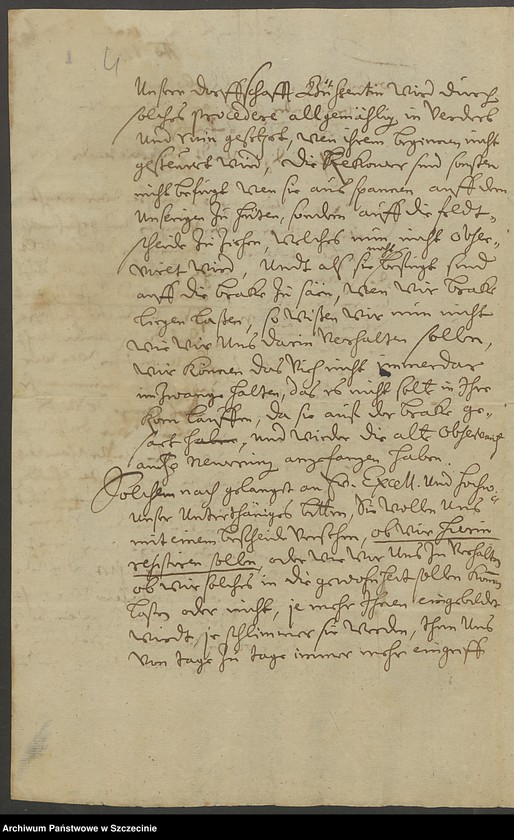 4
Unsere dorffschafft Büssentin wird durch
solches procedere allgemählig in Verderb
Und ruin gesetzet, wen ihrem beginnen nicht
gesteuret wird, die sind sonsten
nicht befugt wen sie aus spannen auff dem
Unserigen Zu hüten, sondern auff die feldt-
scheide Zu ziehen, welches nun nicht obser-
viret wird, Undt als sie nicht befugt sind
auff die brake Zu säen, wen wir brake
liegen lassen, so wissen wir nun nicht
wie wir Uns darin verhalten sollen,
wir können das Vieh nicht immerdar
im Zwange halten, das es nicht solt in Ihre
Korn lauffen, da sie auff der brake ge-
säet haben, und wieder die alte observantz
eine Neuerung angefangen haben.
Solchem nach gelanget an Ew. Excell. Und
unser Unterthäniges bitten, Sie wollen uns
mit einem bescheide versehen, ob wir hierin
resistiren sollen oder wie wir Uns Zu verhalten
ob wir solches in die gewohnheit sollen komen
lassen oder nicht, je mehr Ihnen eingebildet
wirdt, je schlimmer sie werden, Ihnen Uns
von tage Zu tage immer mehr eingriff
Archiwum Państwowe w Szczecinie